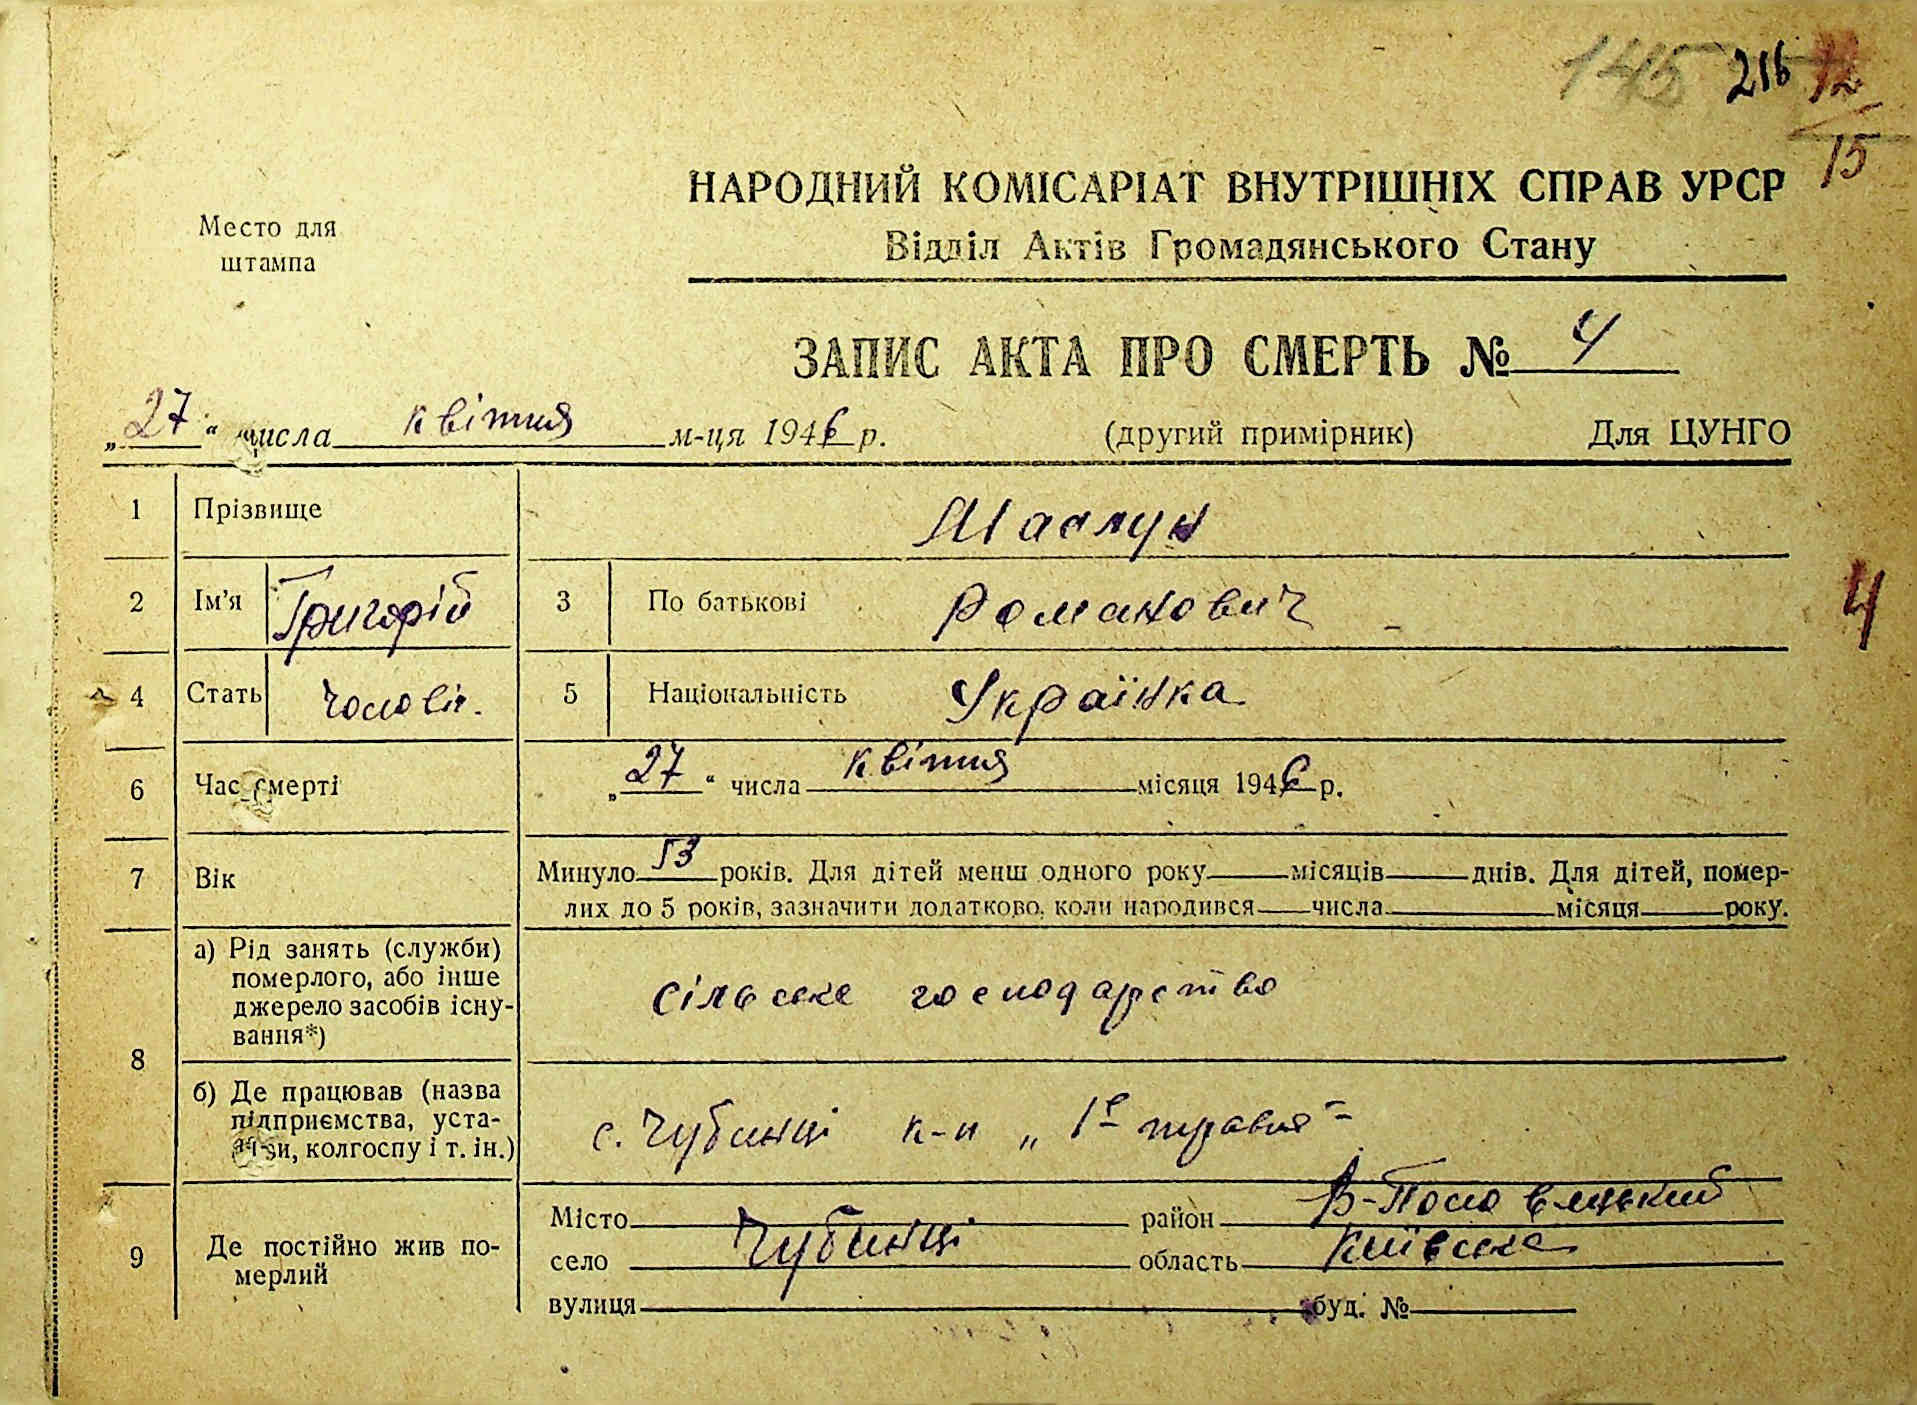 145 216 12
15
НАРОДНИЙ КОМІСАРІАТ ВНУТРІШНІХ СПРАВ УРСР
Место для
штампа
Відділ Актів Громадянського Стану
ЗАПИС АКТА ПРО СМЕРТЬ № 4
„27“ числа квітня м-ця 1946 р. (другий примірник) Для ЦУНГО
1 Прізвище Маслун
2 Ім'я Григорій 3 По батькові Романович
4
4 Стать чоловіч. 5 Національність Українка
6 Час смерті „27“ числа квітня місяця 1946 р.
7 Вік Минуло 53 років. Для дітей менш одного року місяців днів. Для дітей, помер-
лих до 5 років, зазначити додатково, коли народився числа місяця року.
8 а) Рід занять (служби)
померлого, або інше
джерело засобів існу-
вання*)
сільське господарство
б) Де працював (назва
підприємства, уста-
нови, колгоспу і т. ін.)
с. Чубинці к-п „1е травня"
9 Де постійно жив по-
мерлий
Місто район В-Половецький
село Чубинці область Київська
вулиця буд. №